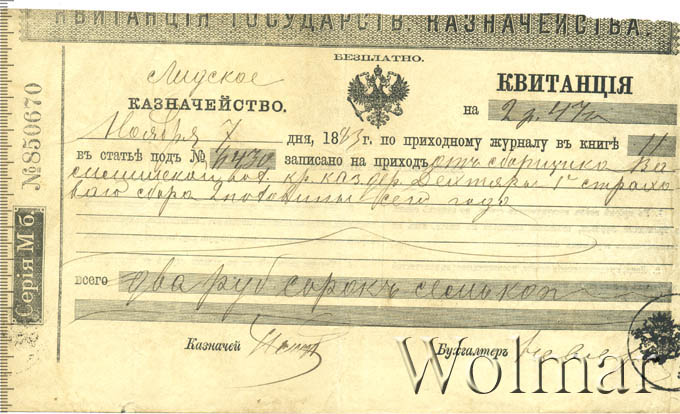 КВИТАНЦІЯ ГОСУДАРСТВ. КАЗНАЧЕЙСТВА.
БЕЗПЛАТНО.
Лидское
КАЗНАЧЕЙСТВО.
КВИТАНЦІЯ
на 2 р. 47 к
Ноября 7 дня, 1893 г. по приходному журналу въ книгѣ 11
въ статьѣ подъ № 6430 записано на приходъ отъ сборщика Ва
вол. кр. каз. др. Дехтяры 1г страхо
ваго сбора 2 половины сего года
всего два руб сорокъ семь коп
Казначей
Бухгалтеръ
№ 850670
Серія М б.
Wolmar